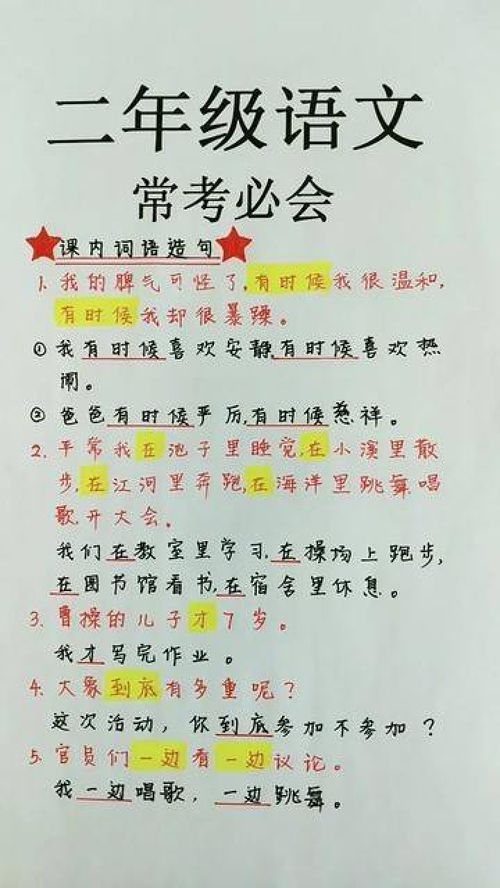 二年级语文
常考必会
课内词语造句
1. 我的脾气可怪了,有时候我很温和,
有时候我却很暴躁。
① 我有时候喜欢安静,有时候喜欢热
闹。
② 爸爸有时候严厉,有时候慈祥。
2. 平常我在池子里睡觉,在小溪里散
步,在江河里奔跑,在海洋里跳舞、唱
歌、开大会。
我们在教室里学习,在操场上跑步,
在图书馆看书,在宿舍里休息。
3. 曹操的儿子才7岁。
我才写完作业。
4. 大象到底有多重呢?
这次活动,你到底参加不参加?
5. 官员们一边看一边议论。
我一边唱歌,一边跳舞。